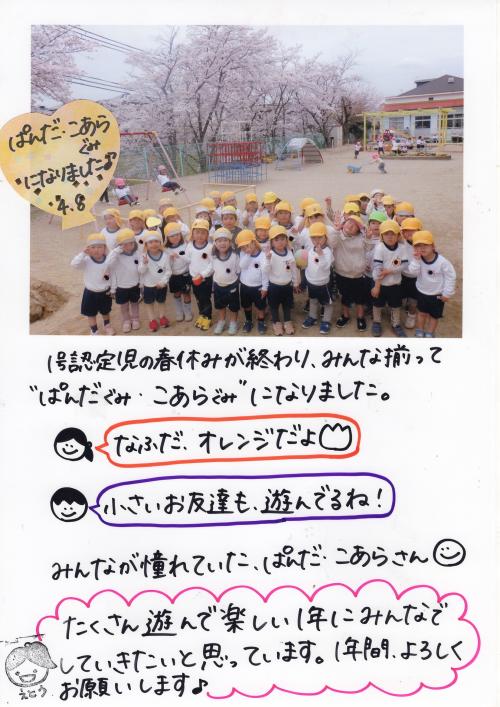 ぱんだ・こあら
ぐみ
になりました♪
4.8
1号認定児の春休みが終わり、みんな揃って
"ぱんだぐみ・こあらぐみ"になりました。
なふだ、オレンジだよ
小さいお友達も、遊んでるね!
みんなが憧れていた、ぱんだ・こあらさん
たくさん遊んで楽しい1年にみんなで
していきたいと思っています。1年間、よろしく
お願いします♪
えとう